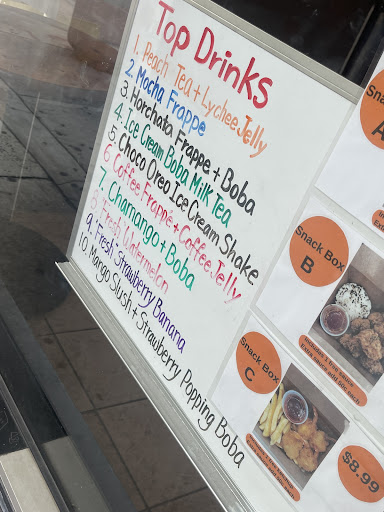 Top Drinks
1. Peach Tea + Lychee Jelly
2. Mocha Frappe
3. Horchata Frappe + Boba
4. Ice Cream Boba Milk Tea
5. Choco Oreo Ice Cream Shake
6. Coffee Frappé + Coffee Jelly
7. Chamango + Boba
8. Fresh Watermelon
9. Fresh Strawberry Banana
10. Mango Slush + Strawberry Popping Boba
Snack
A
Snack Box
B
Includes 1 free sauce
Extra sauce add 50¢ each
Snack Box
C
$8.99